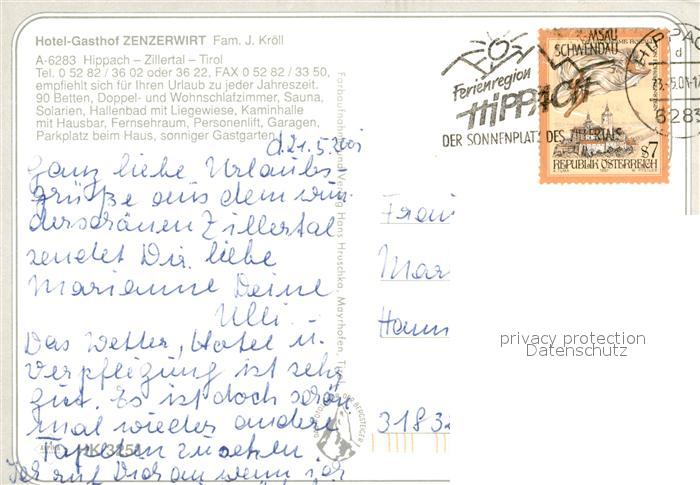 Hotel-Gasthof ZENZERWIRT Fam. J. Kröll
A-6283 Hippach – Zillertal – Tirol
Tel. 0 52 82 / 36 02 oder 36 22, FAX 0 52 82 / 33 50,
empfiehlt sich für Ihren Urlaub zu jeder Jahreszeit.
90 Betten, Doppel- und Wohnschlafzimmer, Sauna,
Solarien, Hallenbad mit Liegewiese, Kaminhalle
mit Hausbar, Fernsehraum, Personenlift, Garagen,
Parkplatz beim Haus, sonniger Gastgarten
d. 21.5.2001
Ganz liebe Urlaubs-
grüße aus dem wun
derschönen Zillertal
sendet Dir liebe
Marianne Deine
Ulli.
Das Wetter, Hotel u.
Verpflegung ist sehr
gut. Es ist doch schön
mal wieder andere
Tapeten zu sehen.
Ich ruf Dich an wenn ich
HK 3251
Farbaufnahme und Verlag Hans Hruschka, Mayrhofen, Tirol
MSAU
SCHWENDAU
Ferienregion
HIPPACH
DER SONNENPLATZ DES ZILLERTALS
HIPPACH
d
23.-5.01-1
6283
S 7
REPUBLIK ÖSTERREICH
Frau
Mar
Hann
3183
privacy protection
Datenschutz